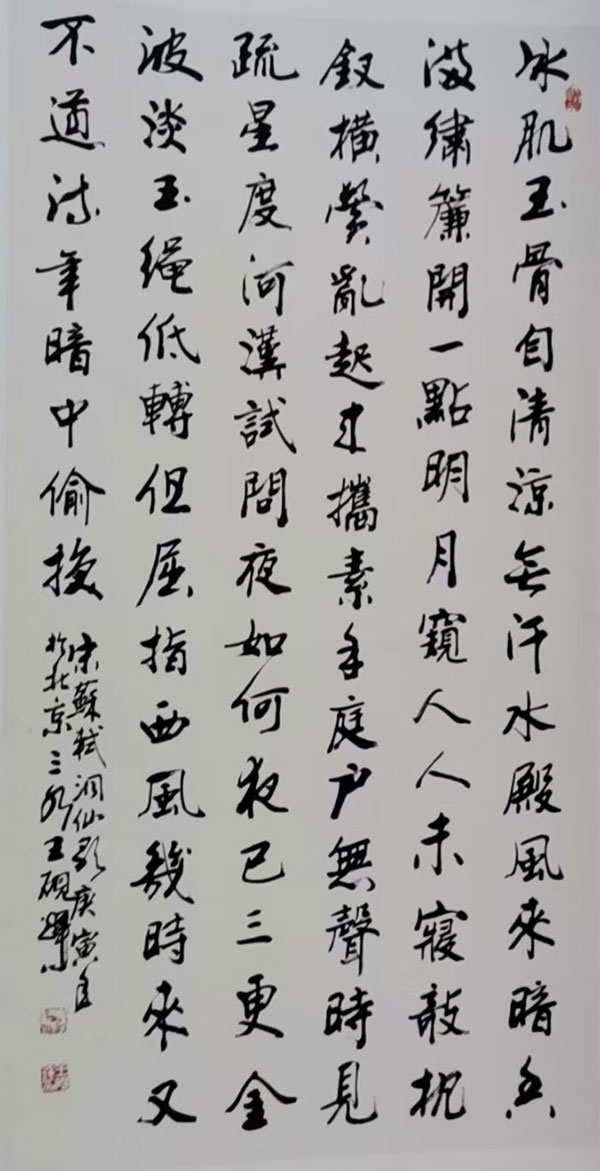 冰肌玉骨自清涼無汗水殿風來暗香
滿繡簾開一點明月窺人人未寢敧枕
釵橫鬢亂起來攜素手庭戶無聲時見
疏星度河漢試問夜如何夜已三更金
波淡玉繩低轉但屈指西風幾時來又
不道流年暗中偷換
宋蘇軾洞仙歌庚寅年
於北京三王硯輝